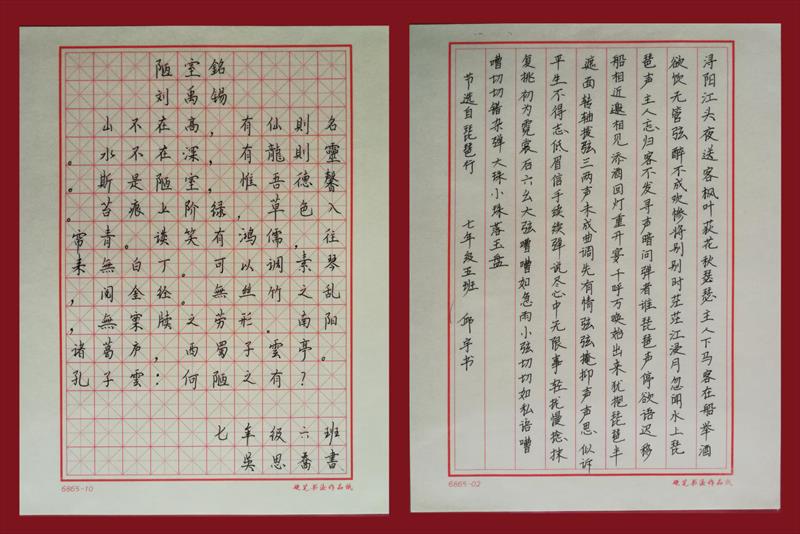 陋室銘
刘禹锡
山不在高，有仙則名
。水不在深，有龍則靈
。斯是陋室，惟吾德馨
。苔痕上阶绿，草色入
帘青。谈笑有鸿儒，往
来無白丁。可以调素琴
，阅金经。無丝竹之乱
，無案牍之劳形。南阳
诸葛庐，西蜀子雲亭。
孔子雲：何陋之有？
七年级六班
吴思蕃書
6865-10
硬笔书法作品纸
浔阳江头夜送客枫叶荻花秋瑟瑟主人下马客在船举酒
欲饮无管弦醉不成欢惨将别别时茫茫江浸月忽闻水上琵
琶声主人忘归客不发寻声暗问弹者谁琵琶声停欲语迟移
船相近邀相见添酒回灯重开宴千呼万唤始出来犹抱琵琶半
遮面转轴拨弦三两声未成曲调先有情弦弦掩抑声声思似诉
平生不得志低眉信手续续弹说尽心中无限事轻拢慢捻抹
复挑初为霓裳后六幺大弦嘈嘈如急雨小弦切切如私语嘈
嘈切切错杂弹大珠小珠落玉盘
节选自琵琶行 七年级五班 邱宇书
6865-02
硬笔书法作品纸